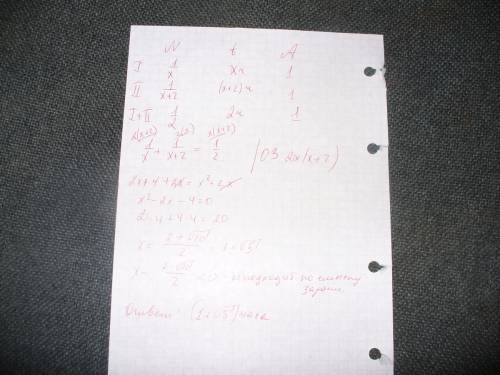 N t A
I 1/x xч 1
II 1/(x+2) (x+2)ч 1
I+II 1/2 2ч 1
1/x + 1/(x+2) = 1/2 | ОЗ 2x(x+2)
2x+4+2x = x²+2x
x²-2x-4=0
4+4·4=20
x = (2+√20)/2 = 1+√5
x = (2-√20)/2 <0 - не подходит по смыслу
задачи.
Ответ: (1+√5) часа